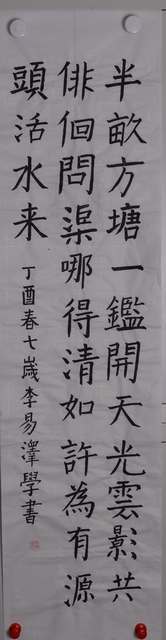 半畝方塘一鑑開天光雲影共
俳佪問渠哪得清如許為有源
頭活水来
丁酉春七歲李易澤學書